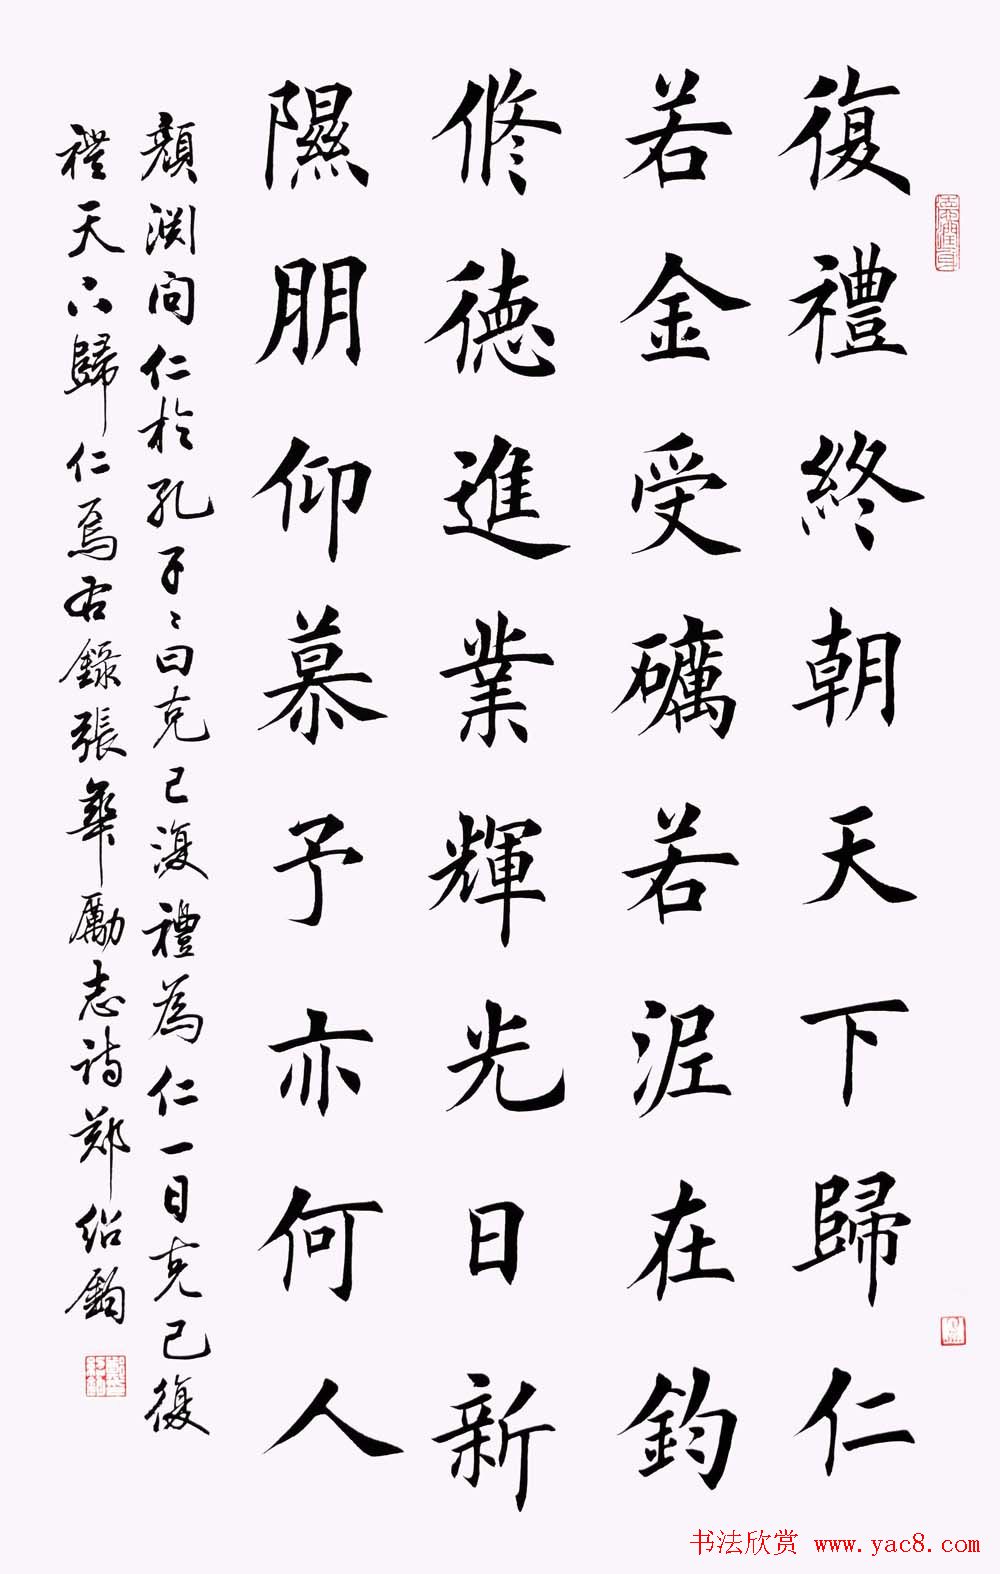 復禮終朝天下歸仁
若金受礪若泥在鈞
修德進業輝光日新
隰朋仰慕予亦何人
顏渊问仁於孔子〻曰克己復禮為仁一日克己復
禮天下歸仁焉右錄張華勵志诗郑绍鈞
书法欣赏 www.yac8.com